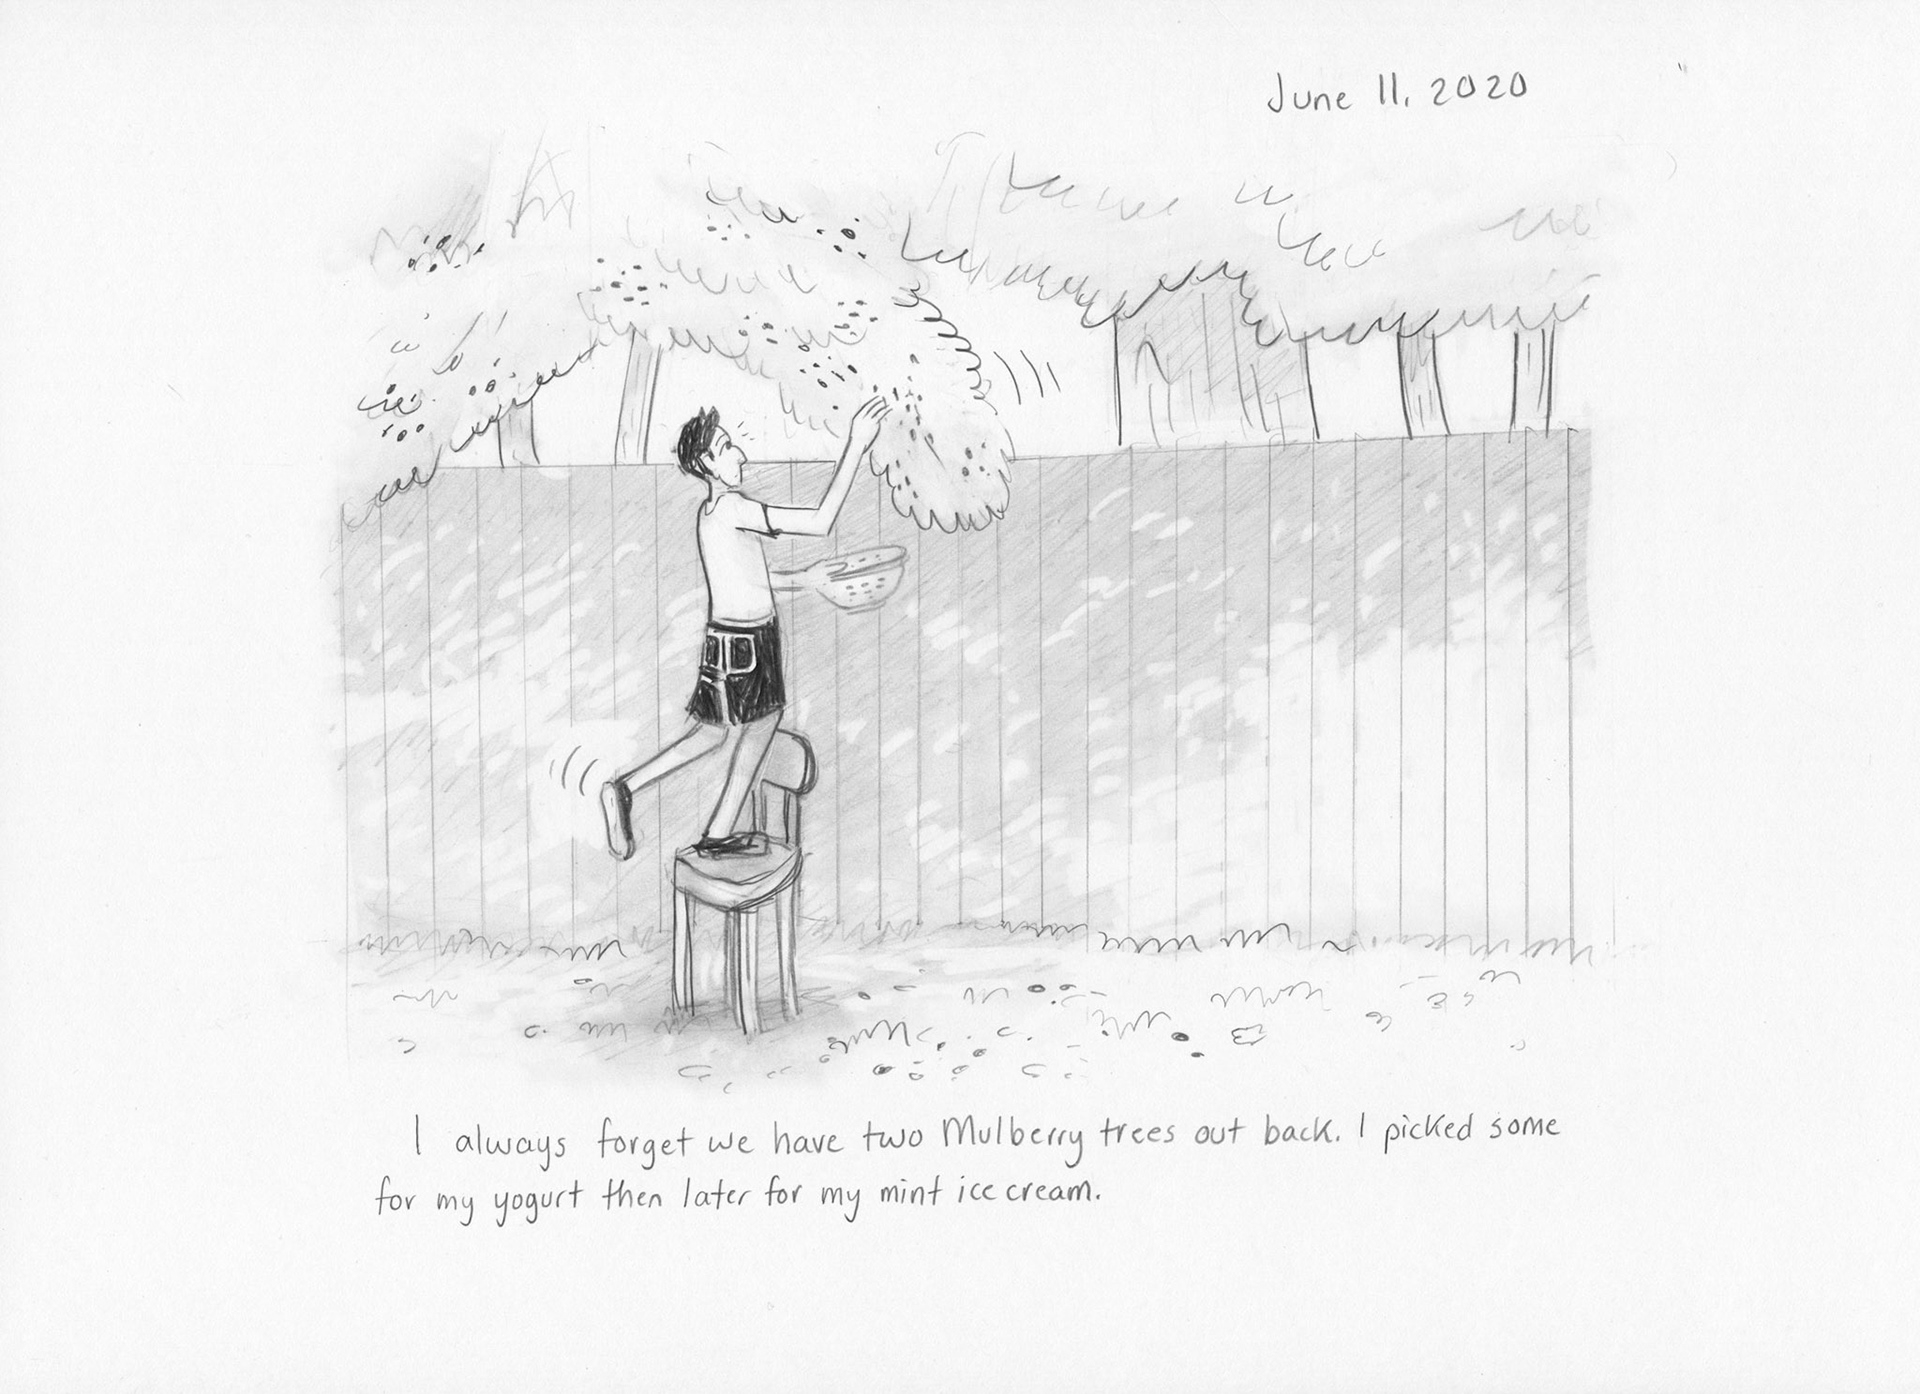 June 11, 2020
I always forget we have two Mulberry trees out back. I picked some
for my yogurt then later for my mint ice cream.